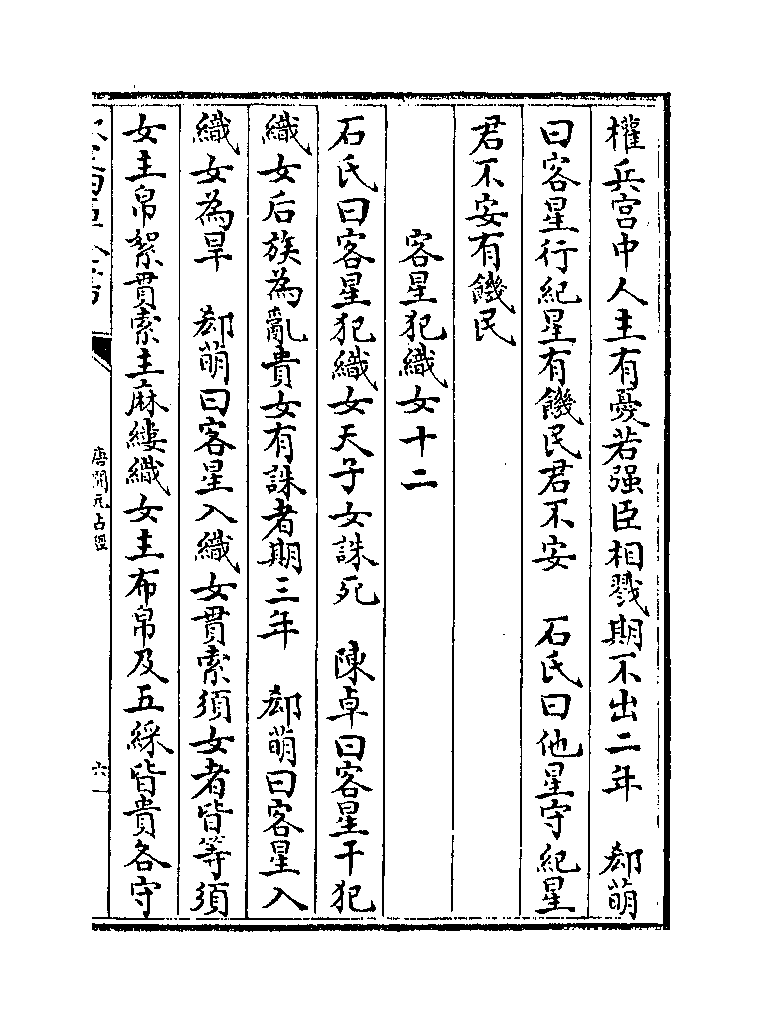 權兵宫中人主有憂若强臣相戮期不出二年　郄萌
曰客星行紀星有饑民君不安　石氏曰他星守紀星
君不安有饑民
客星犯織女十二
石氏曰客星犯織女天子女誅死　陳卓曰客星干犯
織女后族為亂貴女有誅者期三年　郄萌曰客星入
織女為旱　郄萌曰客星入織女貫索須女者皆等須
女主帛絮貫索主麻縷織女主布帛及五綵皆貴各守
唐開元占經
六一